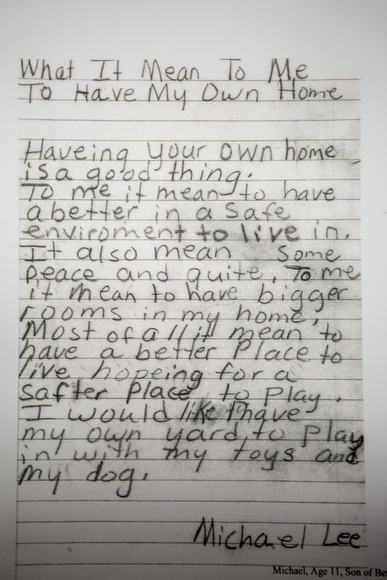 What It Mean To Me
To Have My Own Home
Haveing your own home,
is a good thing.
To me it mean to have
a better in a safe
enviroment to live in.
It also mean some
peace and quite. To me
it mean to have bigger
rooms in my home,
Most of all it mean to
have a better Place to
live, hopeing for a
safter Place to play.
I would like have
my own yard, to play
in with my toys and
my dog.
Michael Lee
Michael, Age 11, Son of Be